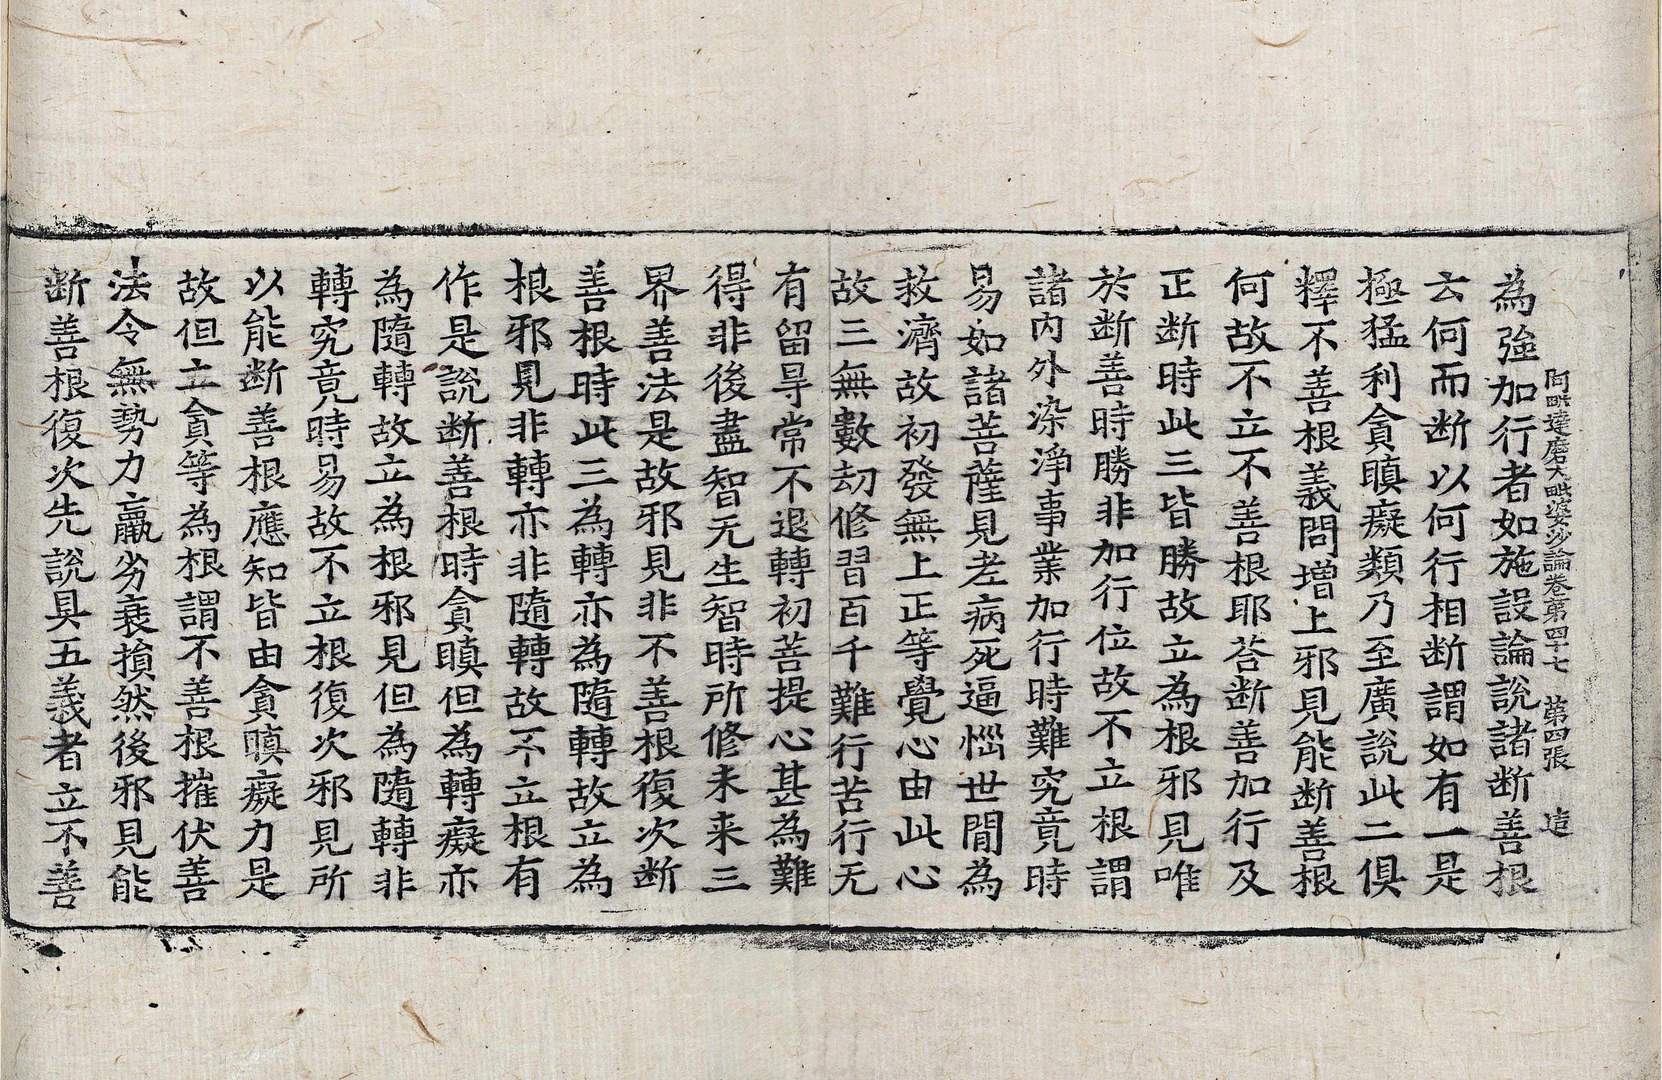 阿毗達磨大毗婆沙論卷第四十七 第四張 造
為強加行者如施設論說諸断善根
云何而断以何行相断謂如有一是
極猛利貪瞋癡類乃至廣說此二俱
釋不善根義問增上邪見能断善根
何故不立不善根耶荅断善加行及
正断時此三皆勝故立為根邪見唯
於断善時勝非加行位故不立根謂
諸内外染淨事業加行時難究竟時
易如諸菩薩見老病死逼惱世間為
救濟故初發無上正等覺心由此心
故三無數劫修習百千難行苦行无
有留㝵常不退轉初菩提心甚為難
得非後盡智无生智時所修未来三
界善法是故邪見非不善根復次断
善根時此三為轉亦為隨轉故立為
根邪見非轉亦非隨轉故不立根有
作是說断善根時貪瞋但為轉癡亦
為隨轉故立為根邪見但為隨轉非
轉究竟時易故不立根復次邪見所
以能断善根應知皆由貪瞋癡力是
故但立貪等為根謂不善根摧伏善
法令無勢力羸劣衰損然後邪見能
断善根復次先說具五義者立不善